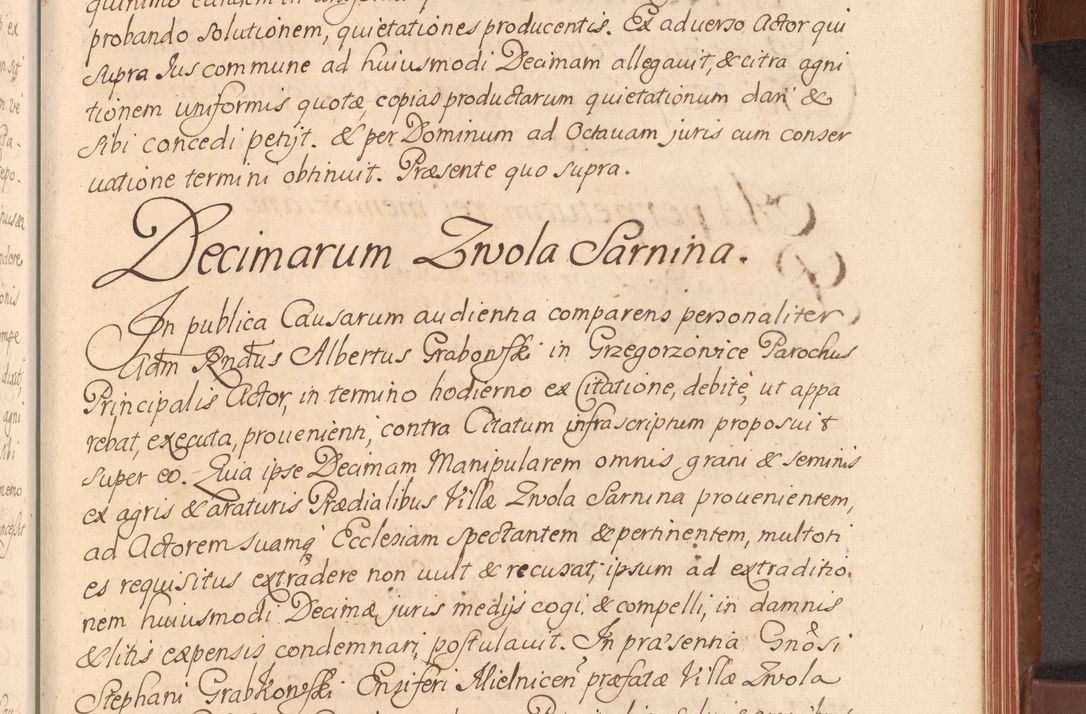 quinimo eandem in uniformi
probando solutionem, quietationes producentis. Ex aduerso, Actor qui
supra Jus commune ad huiusmodi Decimam allegauit, & citra agni
tionem uniformis quotæ, copias productarum quietationum dari &
sibi concedi petijt. & per Dominum ad Octauam juris cum conser
uatione termini obtinuit. Præsente quo supra.
Decimarum Zwola Sarnina.
In publica Causarum audientia comparens personaliter
Adm Rndus Albertus Grabowski in Grzegorzowice Parochus
Principalis Actor, in termino hodierno ex Citatione, debitè, ut appa
rebat, executa, prouenienti, contra Citatum infrascriptum proposuit
super eo. Quia ipse Decimam Manipularem omnis grani & seminis
ex agris & araturis Prædialibus Villæ Zwola Sarnina prouenientem,
ad Actorem suamq Ecclesiam spectantem & pertinentem, multoti
es requisitus extradere non uult & recusat, ipsum ad extraditio
nem huiusmodi Decimæ juris medijs cogi, & compelli, in damnis
& litis expensis condemnari, postulauit. In præsentia Gnosi
Stephani Grabkowski Ensiferi Mielnicen præfatæ Villæ Zwola